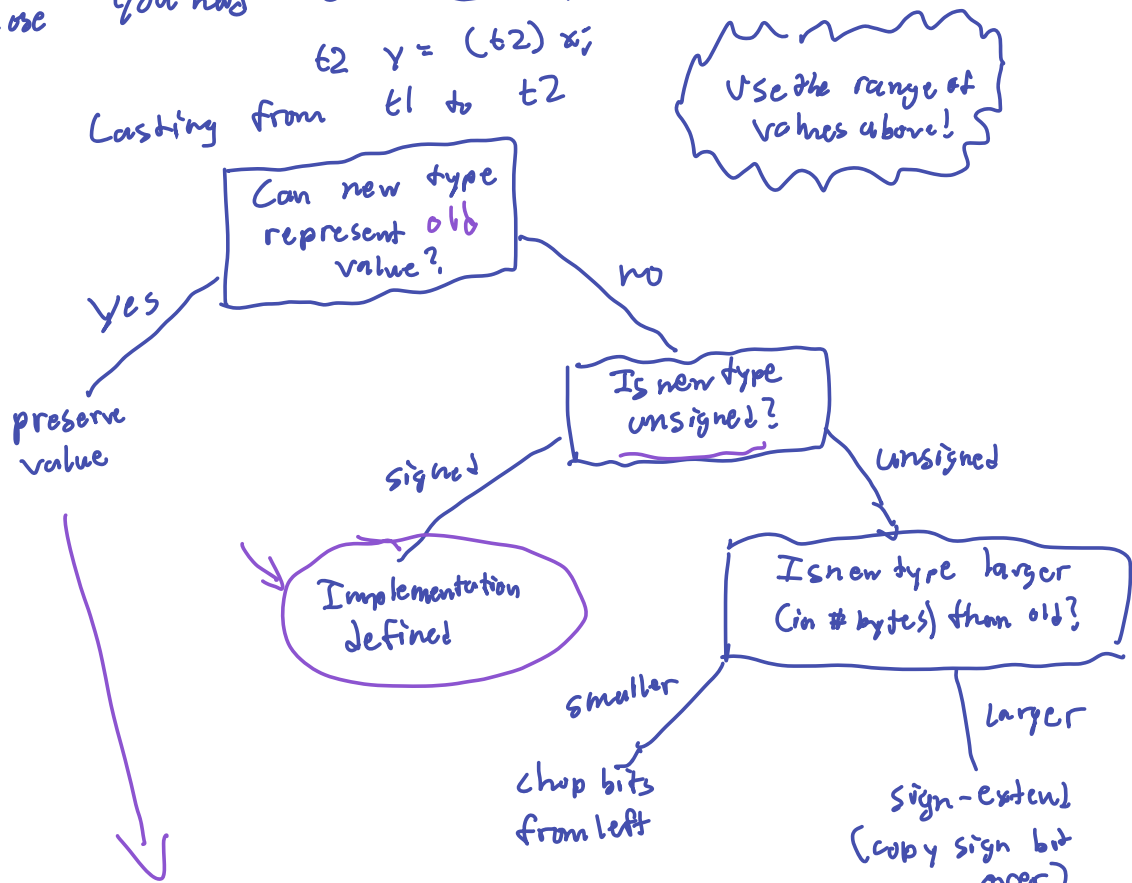 ose you had
t2 y = (t2) x;
Casting from t1 to t2
Use the range of
values above!
Can new type
represent old
value?
yes
no
preserve
value
Is new type
unsigned?
signed
unsigned
Implementation
defined
Is new type larger
(in # bytes) than old?
smaller
larger
chop bits
from left
sign-extend
(copy sign bit
over)